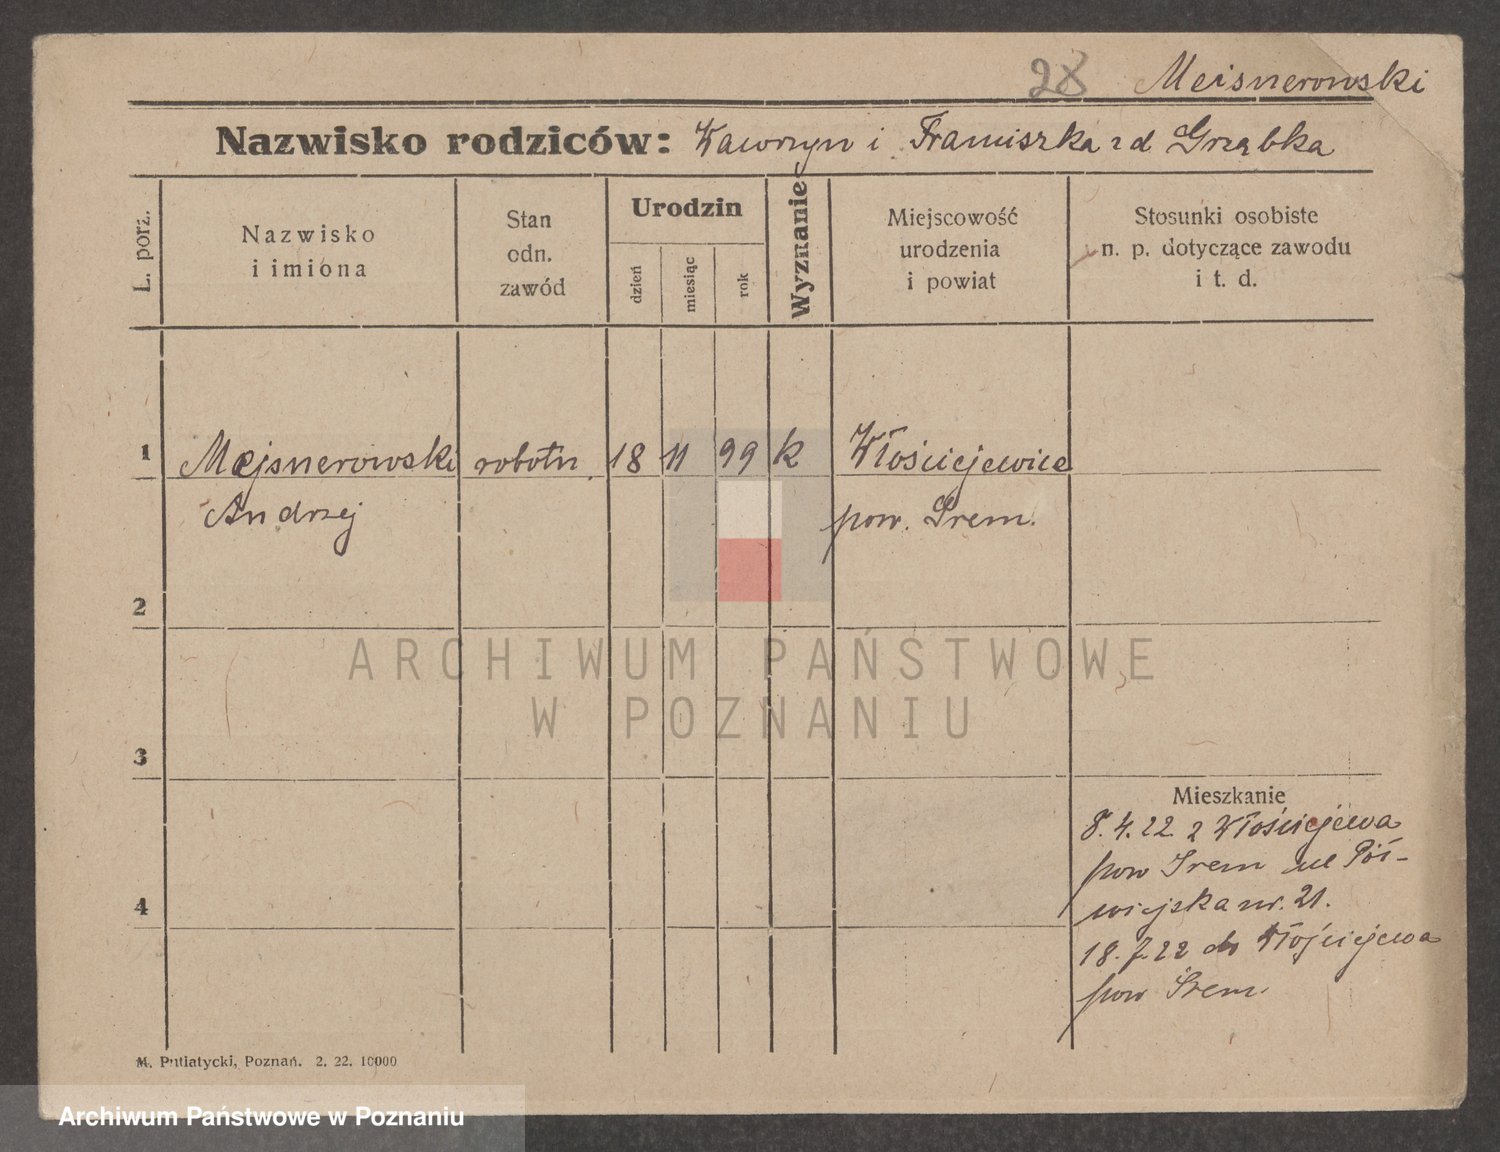 28 Meisnerowski
Nazwisko rodziców: Wawrzyn i Franciszka z d Grząbka
L. porz.
Nazwisko
i imiona
Stan
odn.
zawód
Urodzin
dzień
miesiąc
rok
Wyznanie
Miejscowość
urodzenia
i powiat
Stosunki osobiste
n. p. dotyczące zawodu
i t. d.
1 Mejsnerowski robotn 18 11 99 k Włościejewice
Andrzej pow. Śrem.
2
ARCHIWUM PAŃSTWOWE
W POZNANIU
3
Mieszkanie
8.4.22 z Włościejewa
pow Śrem ul Pół-
4 wiejska nr. 21.
18.7.22 do Włościejewa
pow Śrem
M. Putiatycki, Poznań. 2. 22. 10000
Archiwum Państwowe w Poznaniu